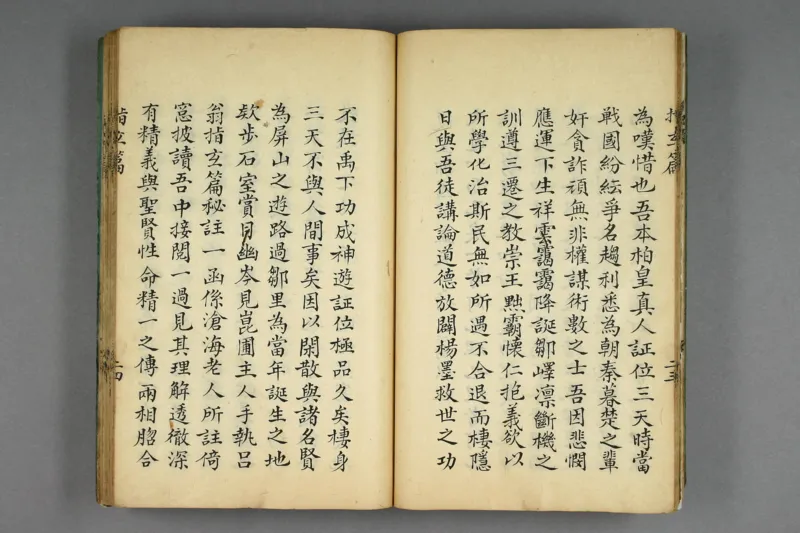 指玄篇
二十三
為嘆惜也吾本柏皇真人証位三天時當
戰國紛紜爭名趨利悉為朝秦暮楚之輩
奸貪詐頑無非權謀術數之士吾因悲憫
應運下生祥雲靄靄降誕鄒嶧凛斷機之
訓遵三遷之教崇王黜霸懷仁抱義欲以
所學化治斯民無如所遇不合退而棲隱
日與吾徒講論道德放闢楊墨救世之功
不在禹下功成神遊証位極品久矣棲身
三天不與人間事矣因以閑散與諸名賢
為屏山之遊路過鄒里為當年誕生之地
欸步石室賞月幽岑見崑圃主人手執呂
翁指玄篇秘註一函係滄海老人所註倚
窓披讀吾中接閱一過見其理解透徹深
有精義與聖賢性命精一之傳兩相脗合
指玄篇
二十四